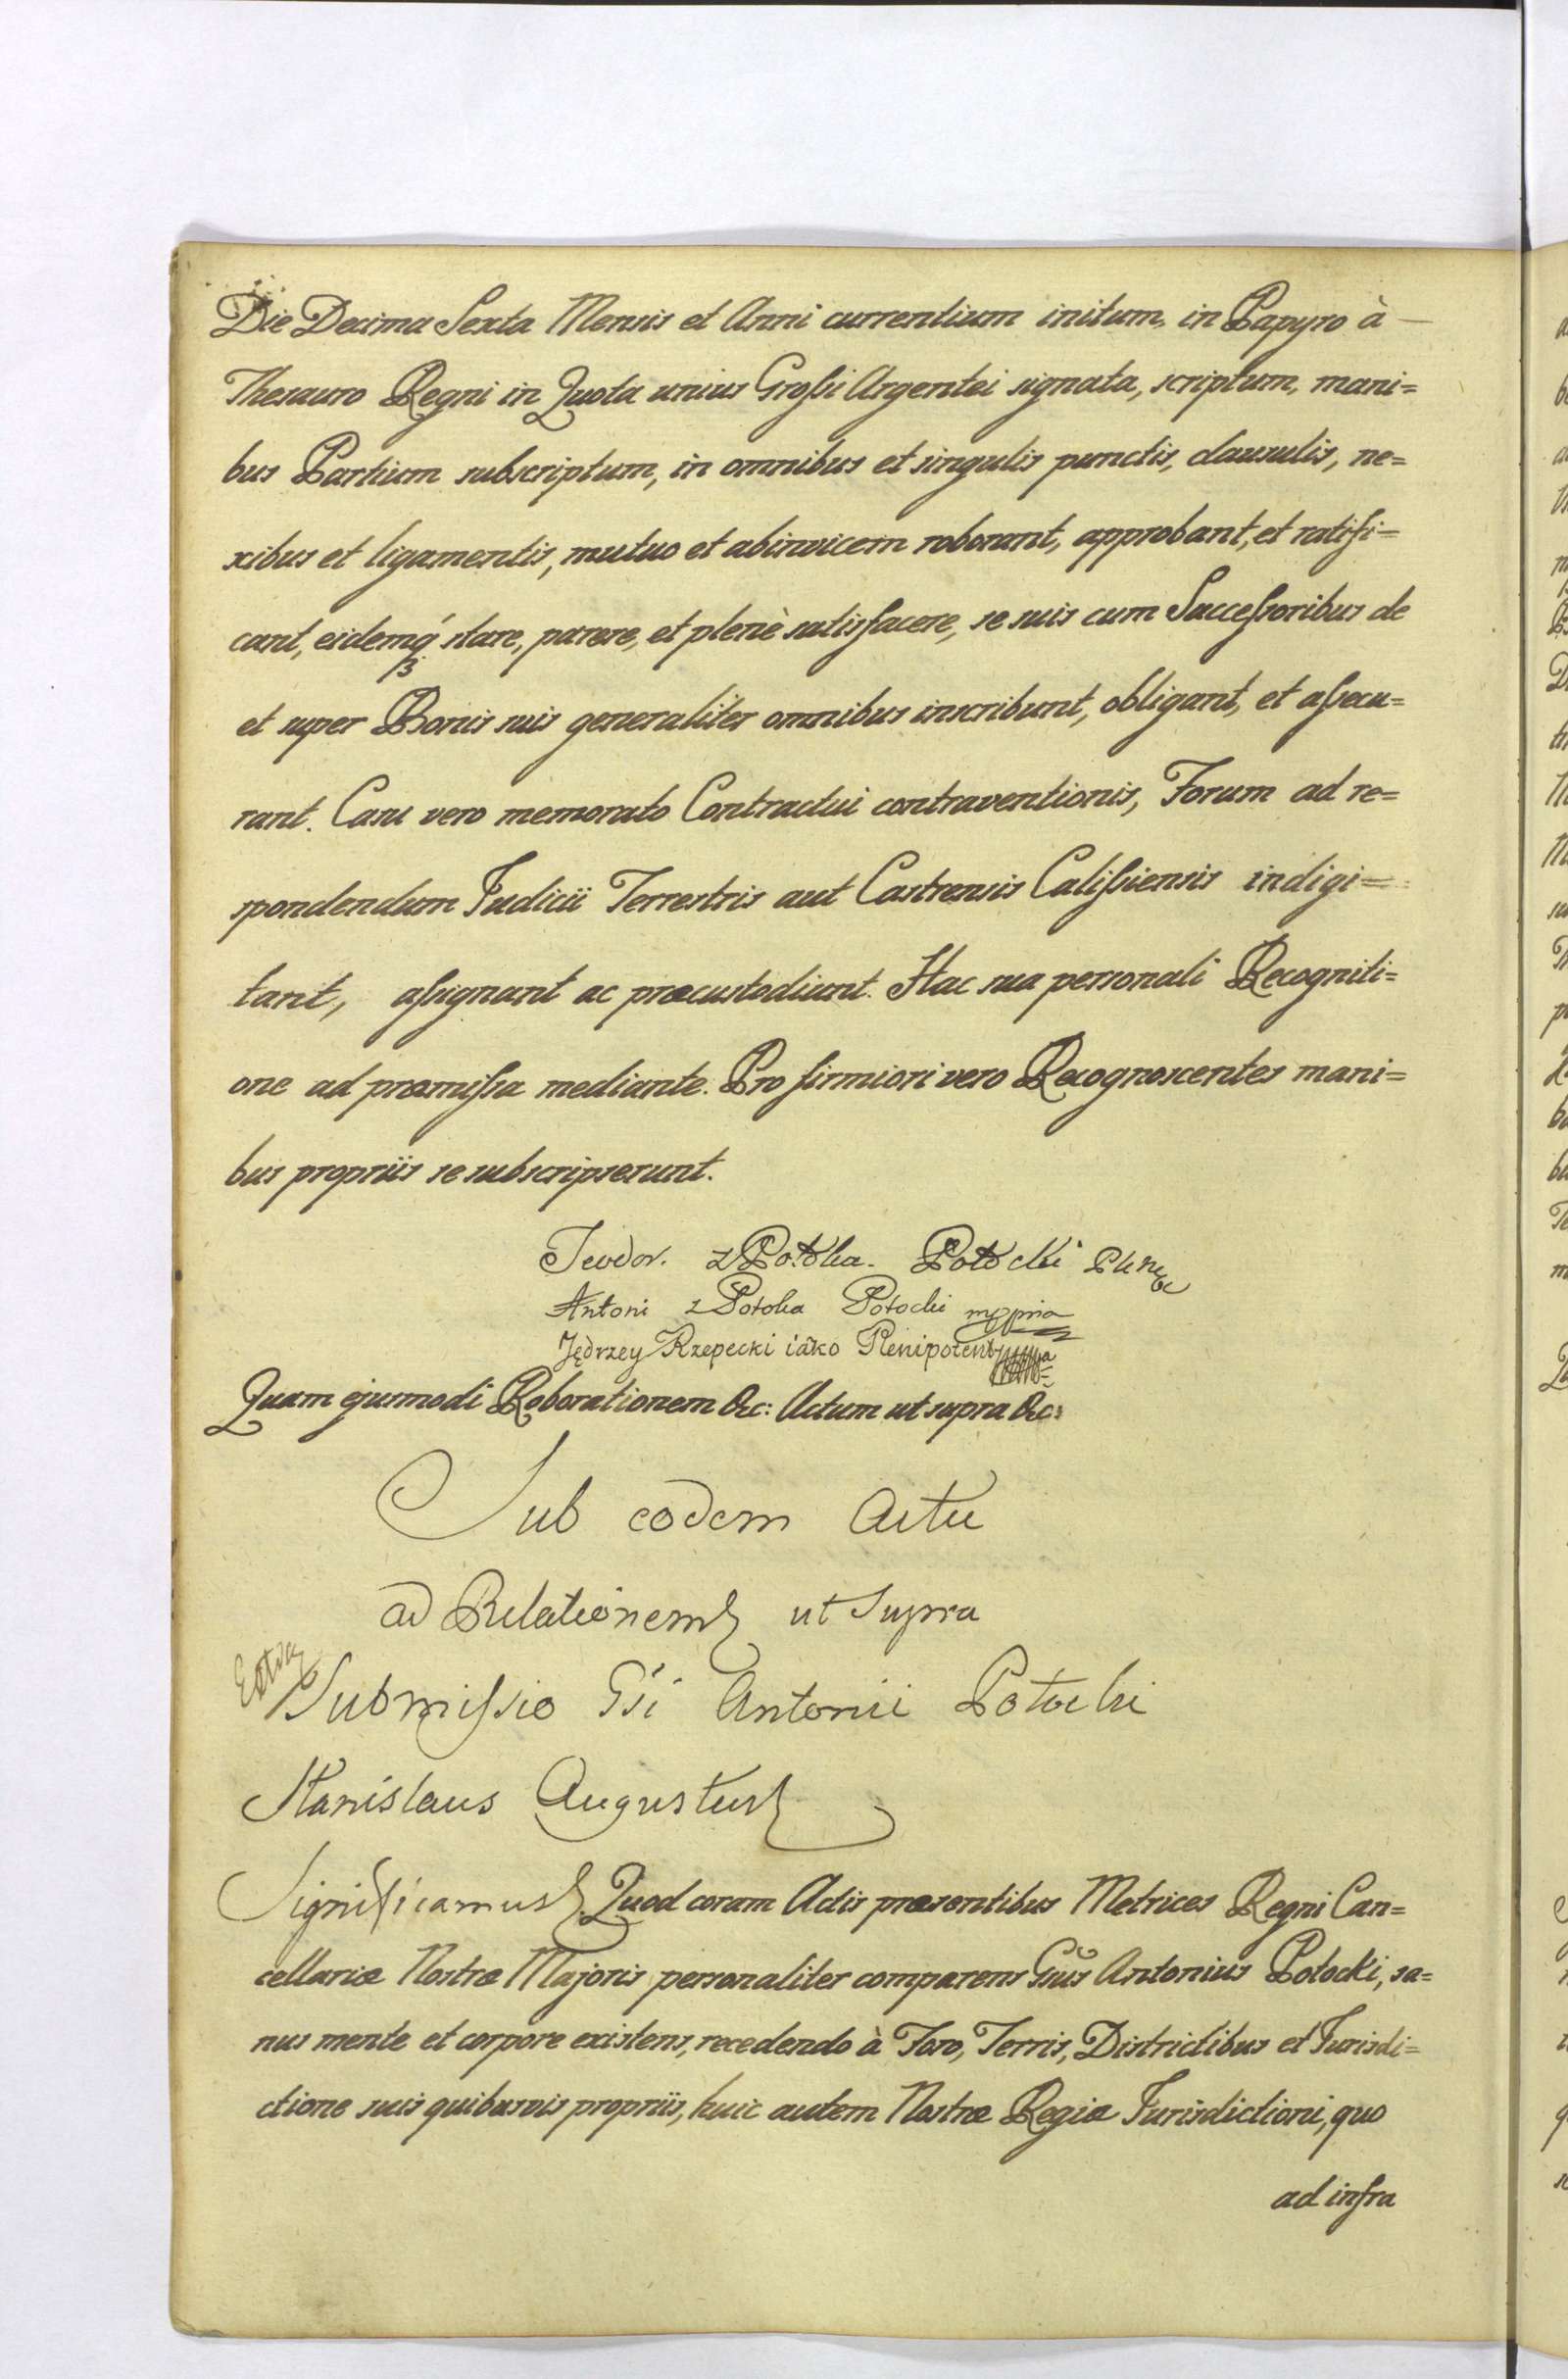 Die Decima Sexta Mensis et Anni currentium initum, in Papyro à —
Thesauro Regni in Quota unius Grossi Argentei signata, scriptum, mani=
bus Partium subscriptum, in omnibus et singulis punctis, clausulis, ne=
xibus et ligamentis, mutuo et abinvicem roborant, approbant, et ratifi=
cant, eidemq́ stare, parere, et plenè satisfacere, se suis cum Successoribus de
et super Bonis suis generaliter omnibus inscribunt, obligant, et assecu=
rant. Casu vero memorato Contractui contraventionis, Forum ad re=
spondendum Judicii Terrestris aut Castrensis Calissiensis indigi=
tant, assignant ac præcustodiunt. Hac sua personali Recogniti=
one ad præmissa mediante. Pro firmiori vero Recognoscentes mani=
bus propriis se subscripserunt.
Teodor. z Potoka. Potocki
Antoni z Potoka Potocki mppria
Jędrzey Rzepecki iako Plenipotent
Quam ejusmodi Roborationem &c: Actum ut supra &c:
Sub eodem Actu
ad Relationem ut supra
Submissio Gsi Antonii Potocki
Stanislaus Augustus
Significamus Quod coram Actis præsentibus Metrices Regni Can=
cellariæ Nostræ Majoris personaliter comparens Gsus Antonius Potocki, sa=
nus mente et corpore existens, recedendo à Foro, Terris, Districtibus et Jurisdi=
ctione suis quibusvis propriis, huic autem Nostræ Regiæ Jurisdictioni, quo
ad infra